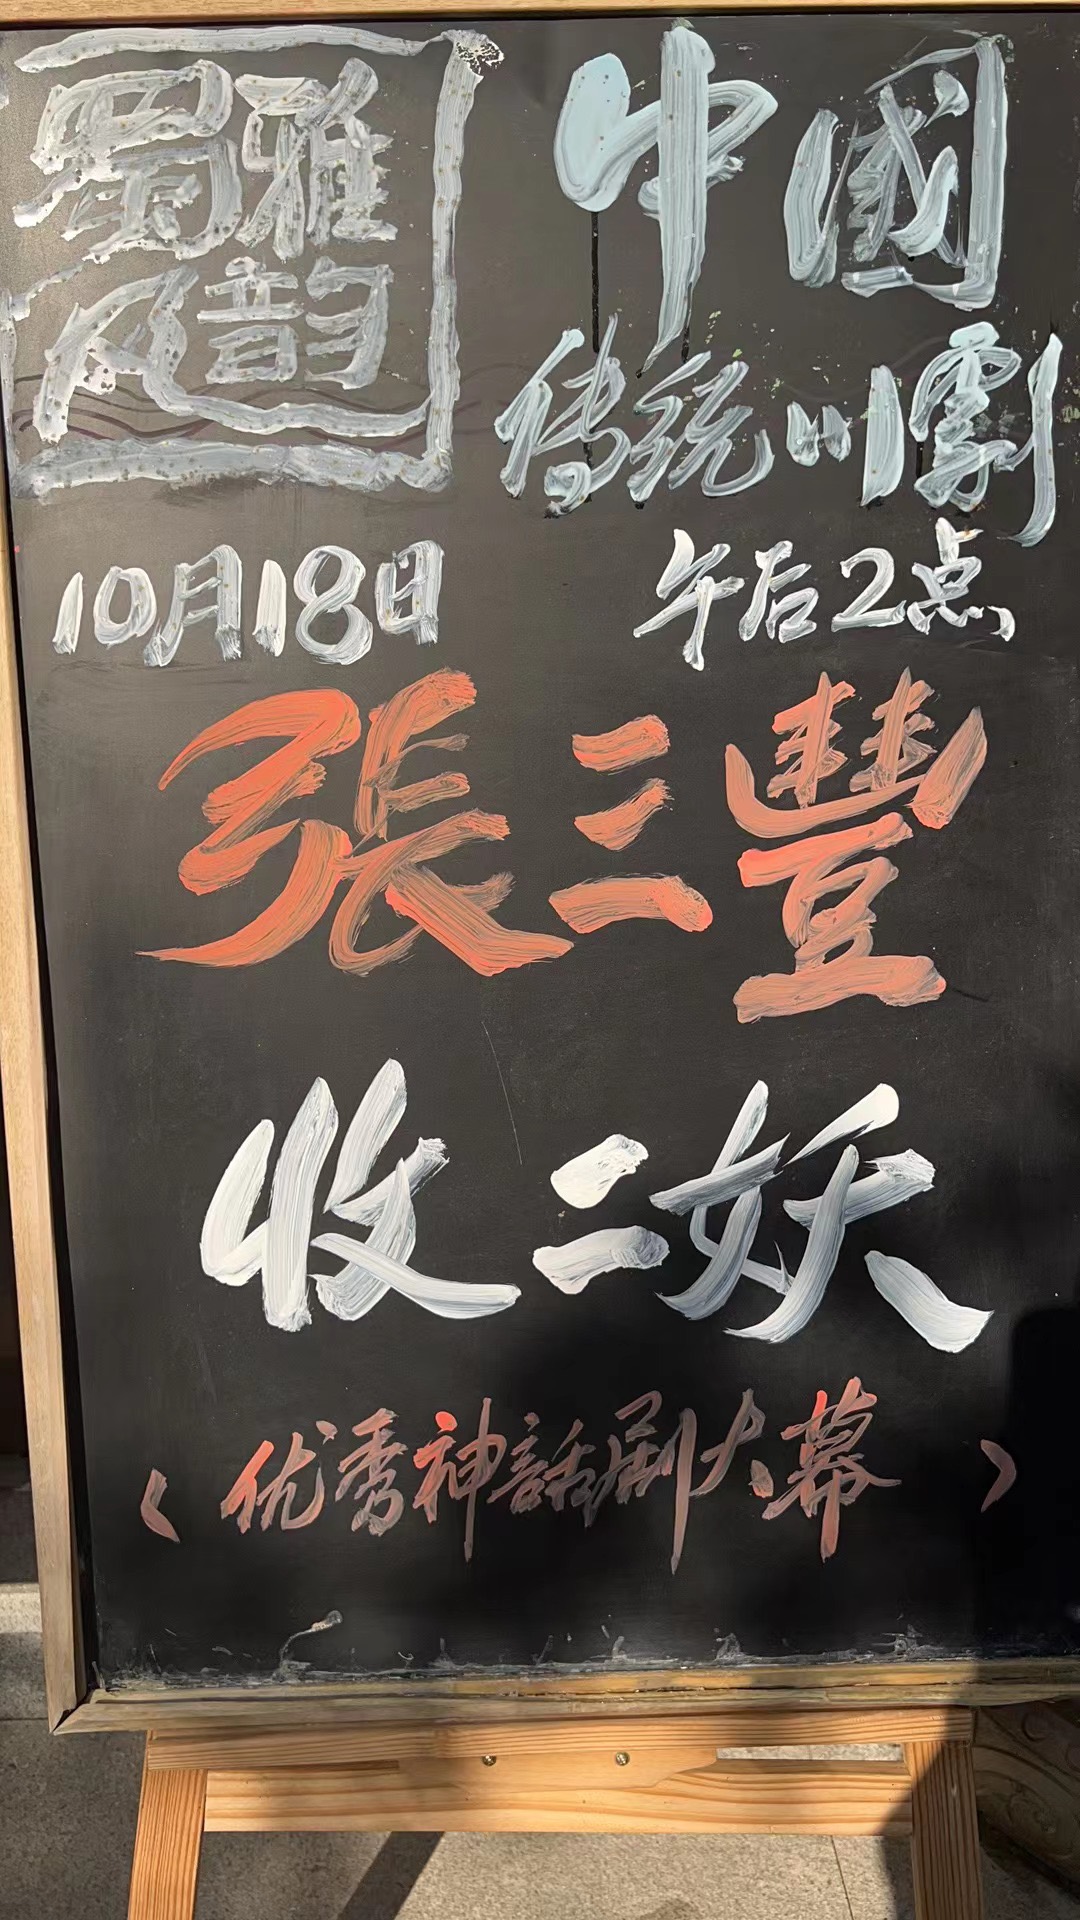 蜀风
雅韵
中國
传统川劇
10月18日 午后2点
張三豐
收二妖
(优秀神話剧大幕)